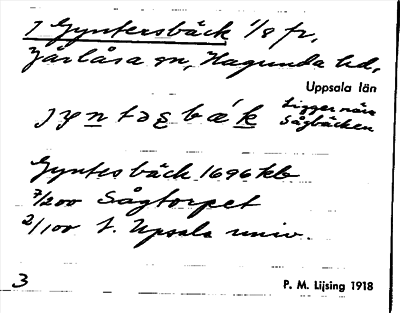 7 Gyntersbäck 1/8 fr,
Järlåsa sn, Hagunda hd,
Uppsala län
Ligger nära
Sågbäcken
Gyntesbäck 1696 Kb
7/200 Sågtorpet
2/100 t. Upsala univ.
3
P. M. Lijsing 1918